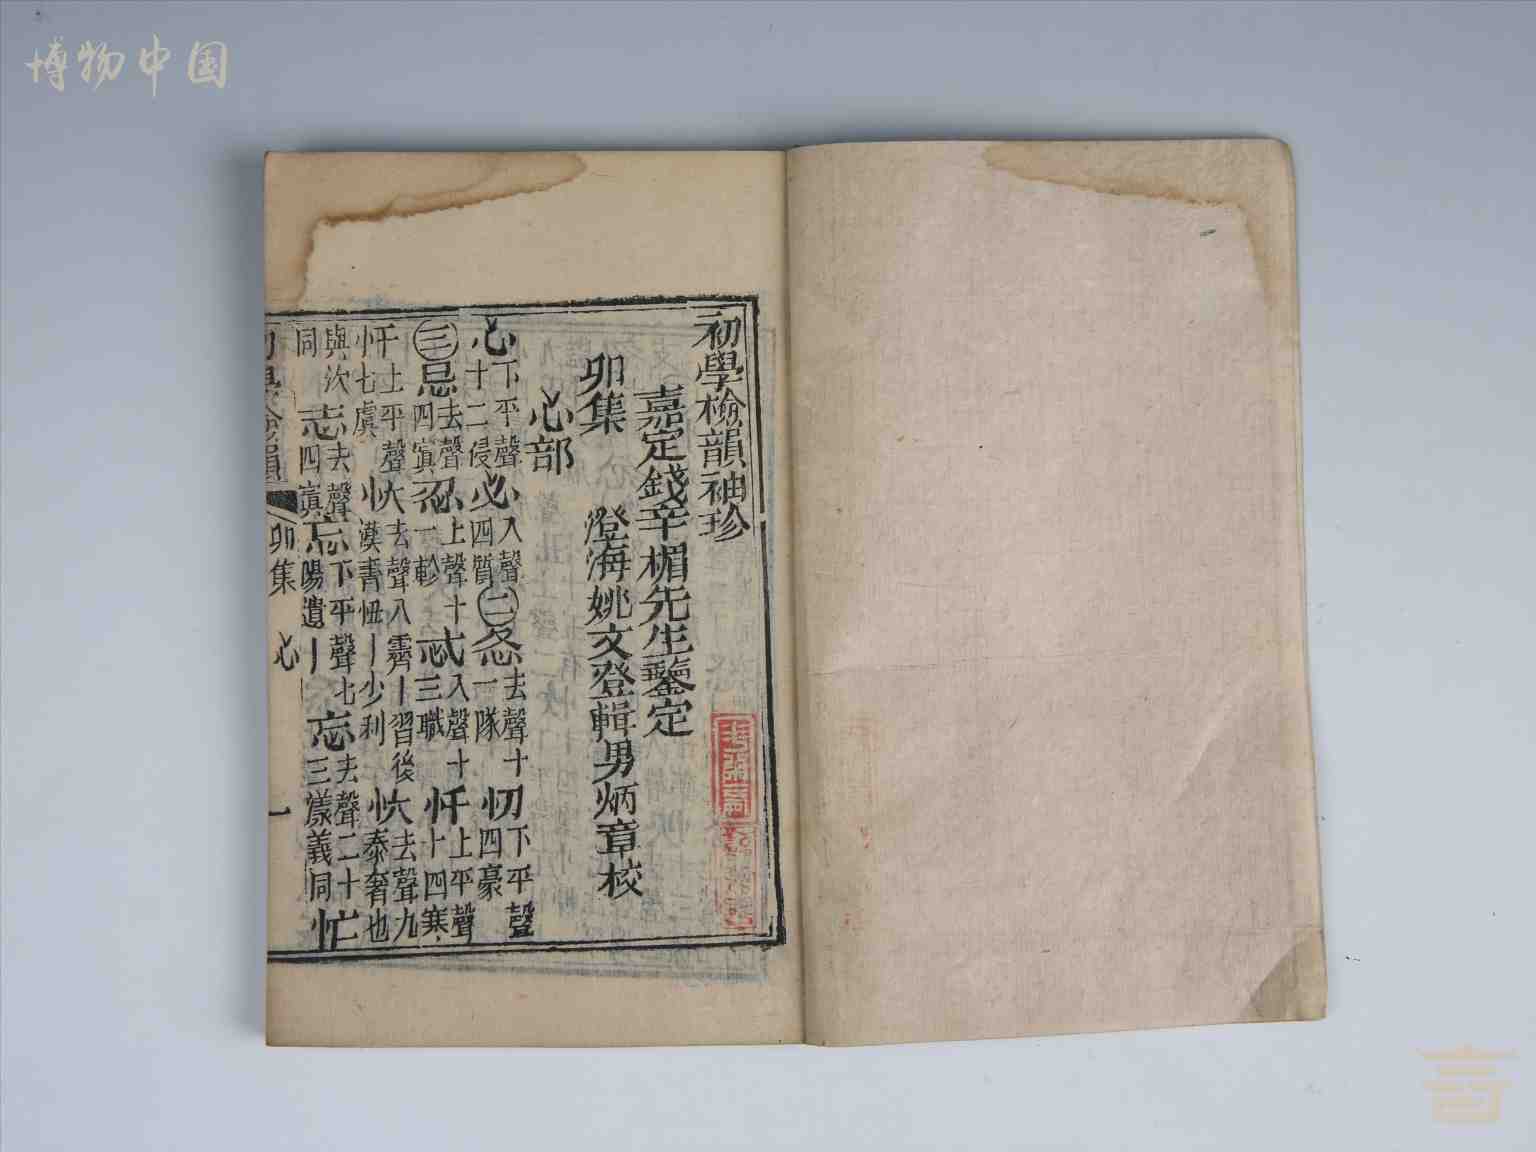 博物中国
初學檢韻袖珍
嘉定錢辛楣先生鑒定
卯集 澄海姚文登輯男炳章校
心部
心下平聲十二侵必入聲四質㊁忢去聲十一隊忉下平聲四豪
㊂忌去聲四寘忍上聲十一軫忒入聲十三職忓上平聲十四寒
忓上平聲七虞忕去聲八霽丨習後漢書忸丨少利忕去聲九泰奢也
與次同志去聲四寘忘下平聲七陽遺丨忘去聲二十三漾義同忙
初學檢韻 卯集 心 一